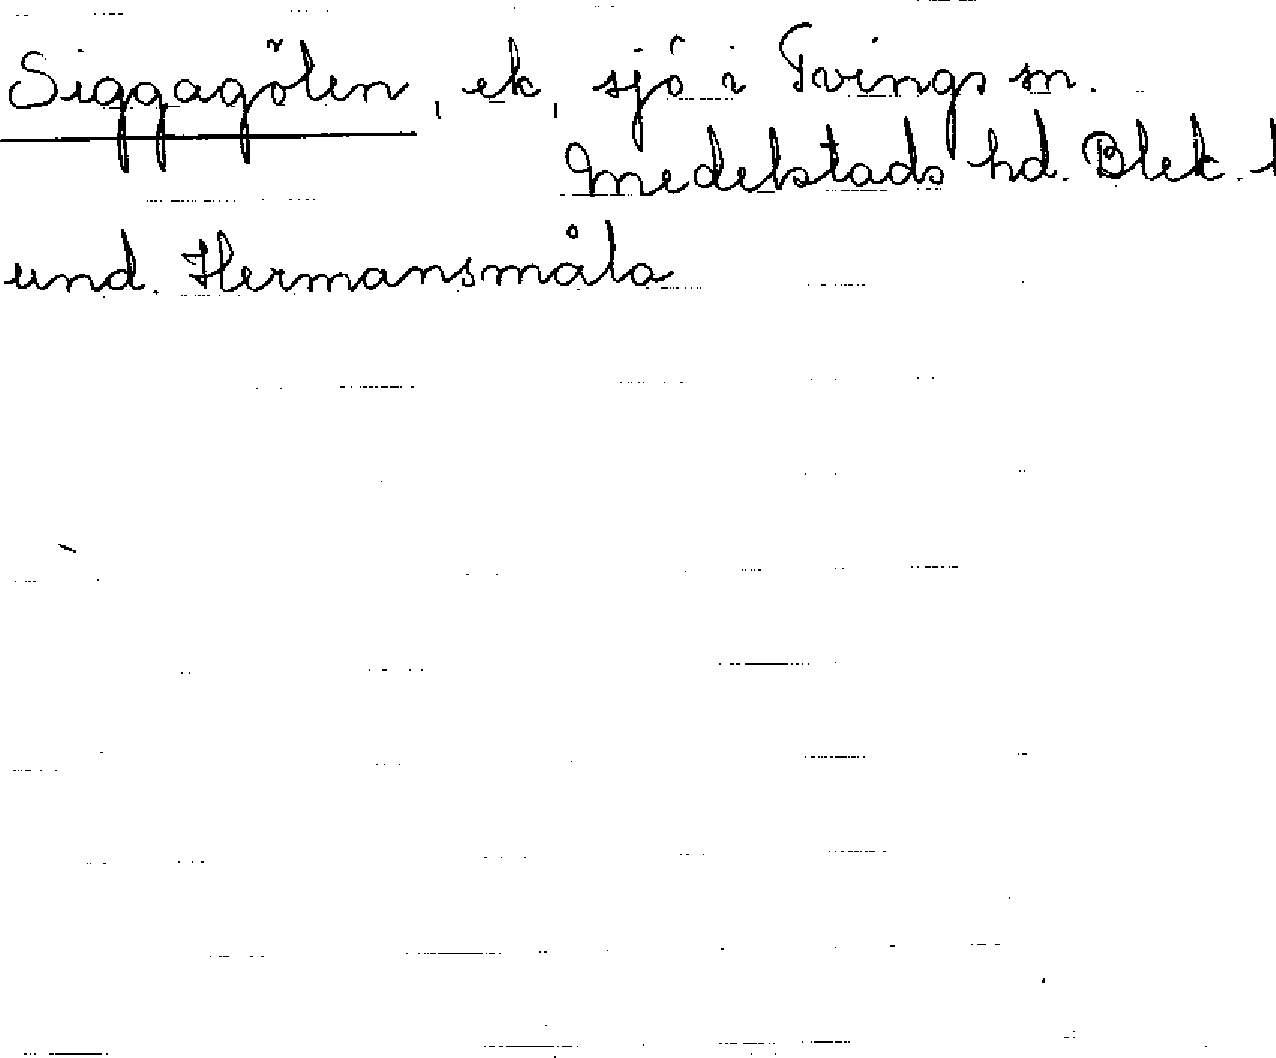 Siggagölen, ek, sjö i Tvings sn.
Medelstads hd. Blek. l
und. Hermansmåla